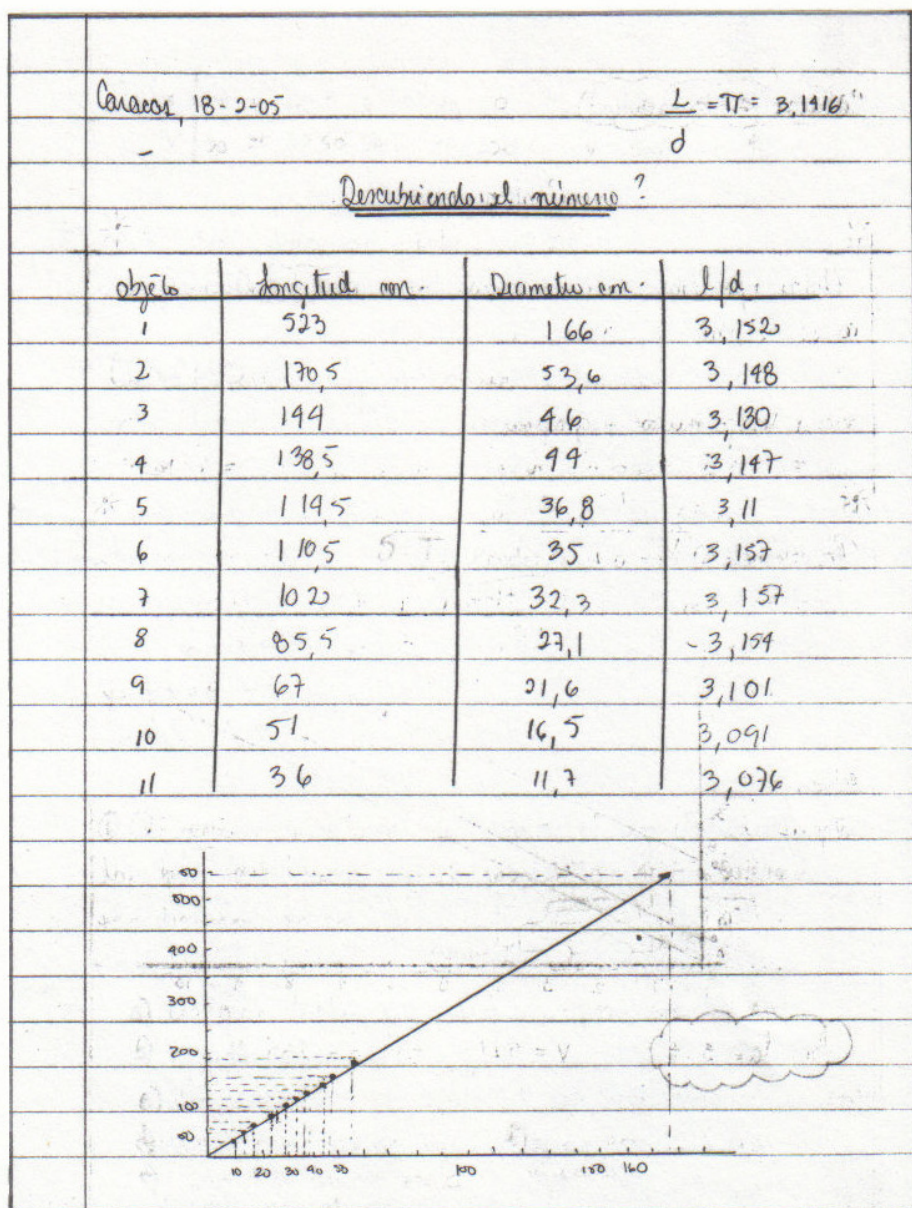 Caracas, 18-2-05
L/d = π = 3,1416
Descubriendo el número ?
objeto Longitud cm. Diametro cm. l/d
1 523 166 3,152
2 170,5 53,6 3,148
3 144 46 3,130
4 138,5 44 3,147
5 114,5 36,8 3,11
6 110,5 35 3,157
7 102 32,3 3,157
8 85,5 27,1 3,154
9 67 21,6 3,101
10 51 16,5 3,091
11 36 11,7 3,076
500
400
300
200
100
50
10 20 30 40 50 100 150 160